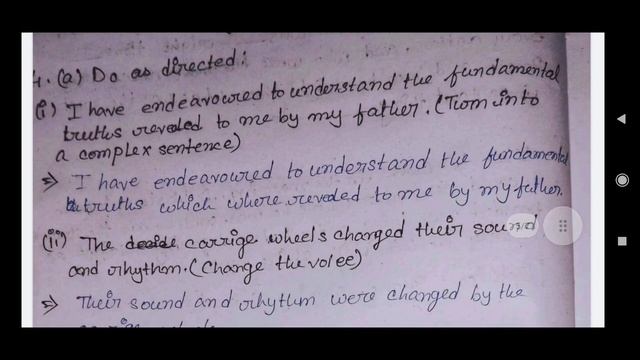 4. (a) Do as directed:
(i) I have endeavoured to understand the fundamental
truths reveded to me by my father. (Tiorn into
a complex sentence)
⇒ I have endeavoured to understand the fundamental
truths which where reveded to me by my father.
(ii) The carrige wheels changed their sound
and rhythm. (Change the voiee)
⇒ Their sound and rhythm were changed by the